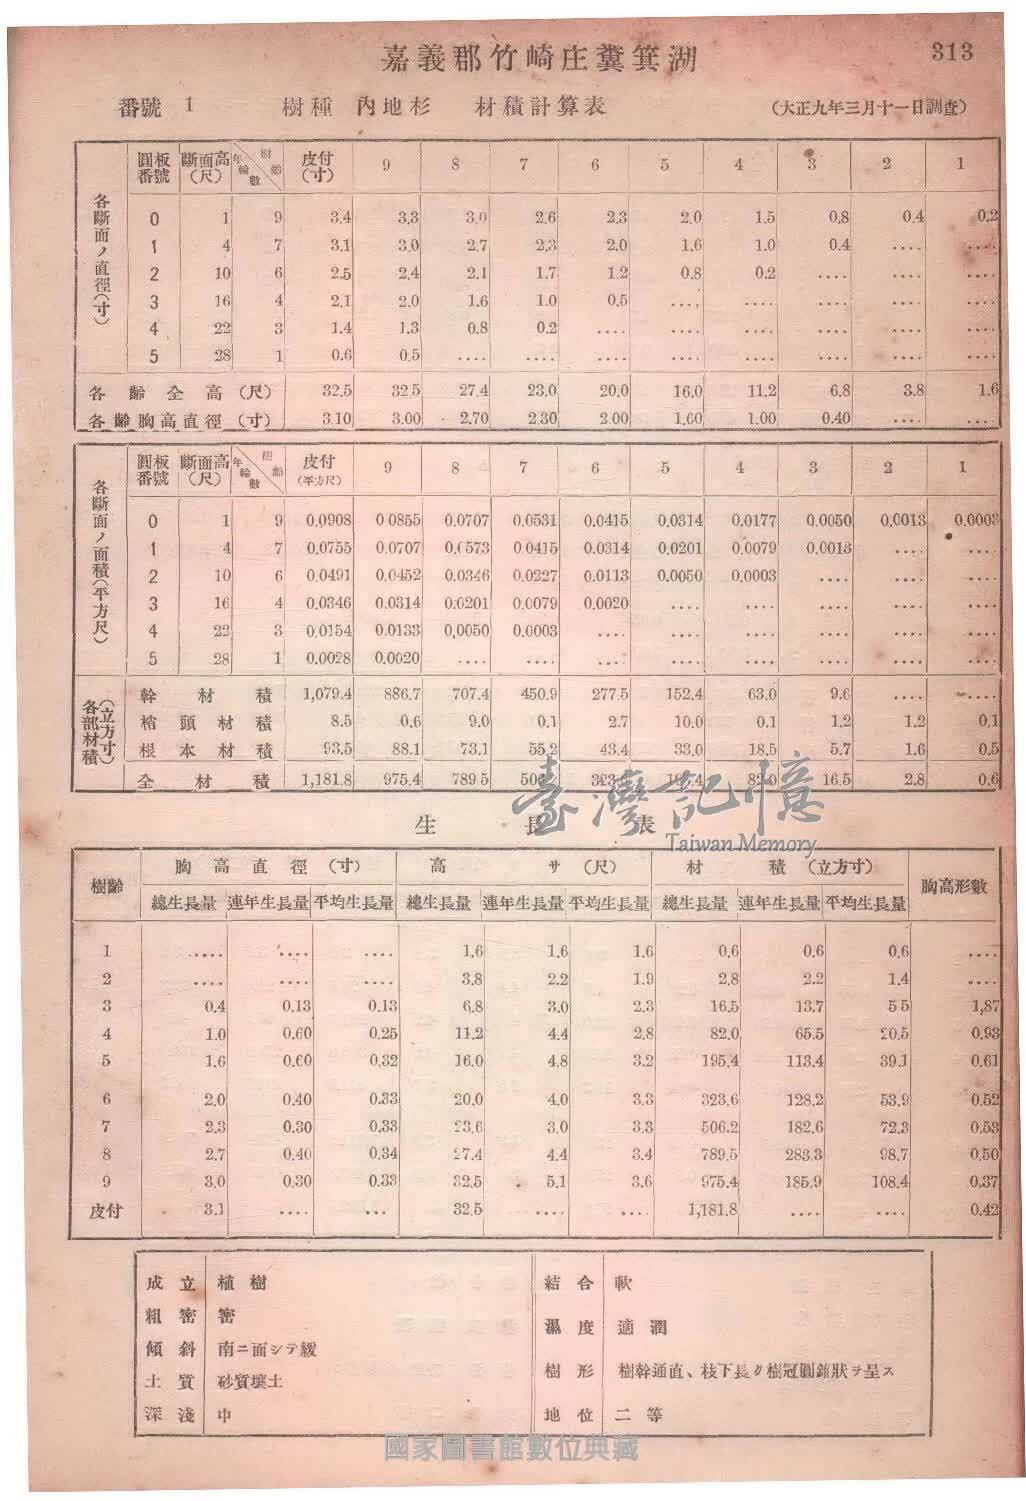 嘉義郡竹崎庄糞箕湖 313
番號 1 樹種 內地杉 材積計算表 (大正九年三月十一日調査)
各斷面ノ直徑(寸)
圓板番號 斷面高(尺) 年輪數 樹齡 皮付(寸) 9 8 7 6 5 4 3 2 1
0 1 9 3.4 3.3 3.0 2.6 2.3 2.0 1.5 0.8 0.4 0.2
1 4 7 3.1 3.0 2.7 2.3 2.0 1.6 1.0 0.4 .... ....
2 10 6 2.5 2.4 2.1 1.7 1.2 0.8 0.2 .... .... ....
3 16 4 2.1 2.0 1.6 1.0 0.5 .... .... .... .... ....
4 22 3 1.4 1.3 0.8 0.2 .... .... .... .... .... ....
5 28 1 0.6 0.5 .... .... .... .... .... .... .... ....
各齡全高(尺) 32.5 32 5 27.4 23.0 20.0 16.0 11.2 6.8 3.8 1.6
各齡胸高直徑(寸) 3.10 3.00 2.70 2.30 2.00 1.60 1.00 0.40 .... ....
各斷面ノ面積(平方尺)
圓板番號 斷面高(尺) 年輪數 樹齡 皮付(平方尺) 9 8 7 6 5 4 3 2 1
0 1 9 0.0908 0 0855 0.0707 0.0531 0.0415 0.0314 0.0177 0.0050 0.0013 0.0003
1 4 7 0.0755 0.0707 0.0573 0 0415 0.0314 0.0201 0.0079 0.0013 .... ....
2 10 6 0.0491 0.0452 0.0346 0.0227 0.0113 0.0050 0.0003 .... .... ....
3 16 4 0.0346 0.0314 0.0201 0.0079 0.0020 .... .... .... .... ....
4 22 3 0.0154 0.0133 0.0050 0.0003 .... .... .... .... .... ....
5 28 1 0.0028 0.0020 .... .... .... .... .... .... .... ....
各部材積(立方寸)
幹材積 1,079.4 886.7 707.4 450.9 277.5 152.4 63.0 9.6 .... ....
梢頭材積 8.5 0.6 9.0 0.1 2.7 10.0 0.1 1.2 1.2 0.1
根本材積 93.5 88.1 73.1 55.2 43.4 33.0 18.5 5.7 1.6 0.5
全材積 1,181.8 975.4 789 5 82.0 16.5 2.8 0.6
臺灣記憶
Taiwan Memory
生長表
樹齡 胸高直徑(寸) 高サ(尺) 材積(立方寸) 胸高形數
總生長量 連年生長量 平均生長量 總生長量 連年生長量 平均生長量 總生長量 連年生長量 平均生長量
1 .... .... .... 1.6 1.6 1.6 0.6 0.6 0.6 ....
2 .... .... .... 3.8 2.2 1.9 2.8 2.2 1.4 ....
3 0.4 0.13 0.13 6.8 3.0 2.3 16.5 13.7 5 5 1,87
4 1.0 0.60 0.25 11.2 4.4 2.8 82.0 65.5 20.5 0.93
5 1.6 0.60 0.32 16.0 4.8 3.2 195.4 113.4 39.1 0.61
6 2.0 0.40 0.33 20.0 4.0 3.3 323.6 128.2 53.9 0.52
7 2.3 0.30 0.33 23.6 3.0 3.3 506.2 182.6 72.3 0.53
8 2.7 0.40 0.34 27.4 4.4 3.4 789.5 283.3 98.7 0.50
9 3.0 0.30 0.33 32.5 5.1 3.6 975.4 185.9 108.4 0.37
皮付 3.1 .... ... 32.5 .... .... 1,181.8 .... .... 0.42
成立 植樹
粗密 密
傾斜 南ニ面シテ緩
土質 砂質壤土
深淺 中
結合 軟
濕度 適潤
樹形 樹幹通直、枝下長ク樹冠圓錐狀ヲ呈ス
地位 二等
國家圖書館數位典藏